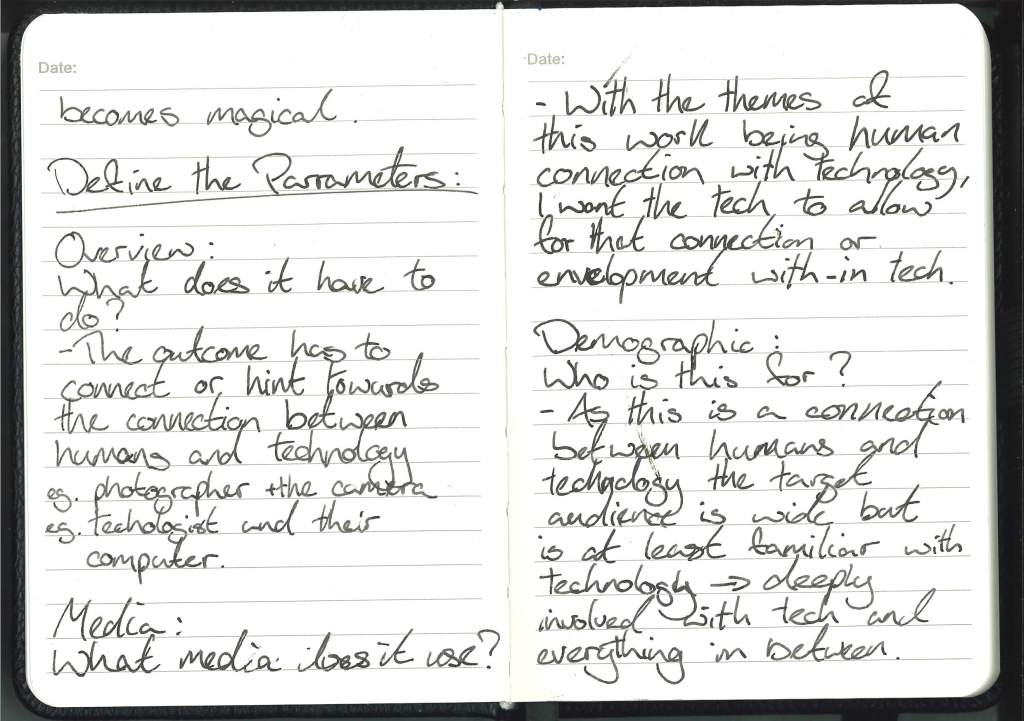 Date:
becomes magical.
Define the Parrameters:
Overview:
What does it have to
do?
- The outcome has to
connect or hint towards
the connection between
humans and technology
eg. photographer + the camera
eg. techologist and their
computer.
Media:
What media does it use?
Date:
- With the themes of
this work being human
connection with technology,
I want the tech to allow
for that connection or
envelopment with-in tech.
Demographic:
Who is this for?
- As this is a connection
between humans and
technology the target
audience is wide but
is at least familiar with
technology → deeply
involved with tech and
everything in between.